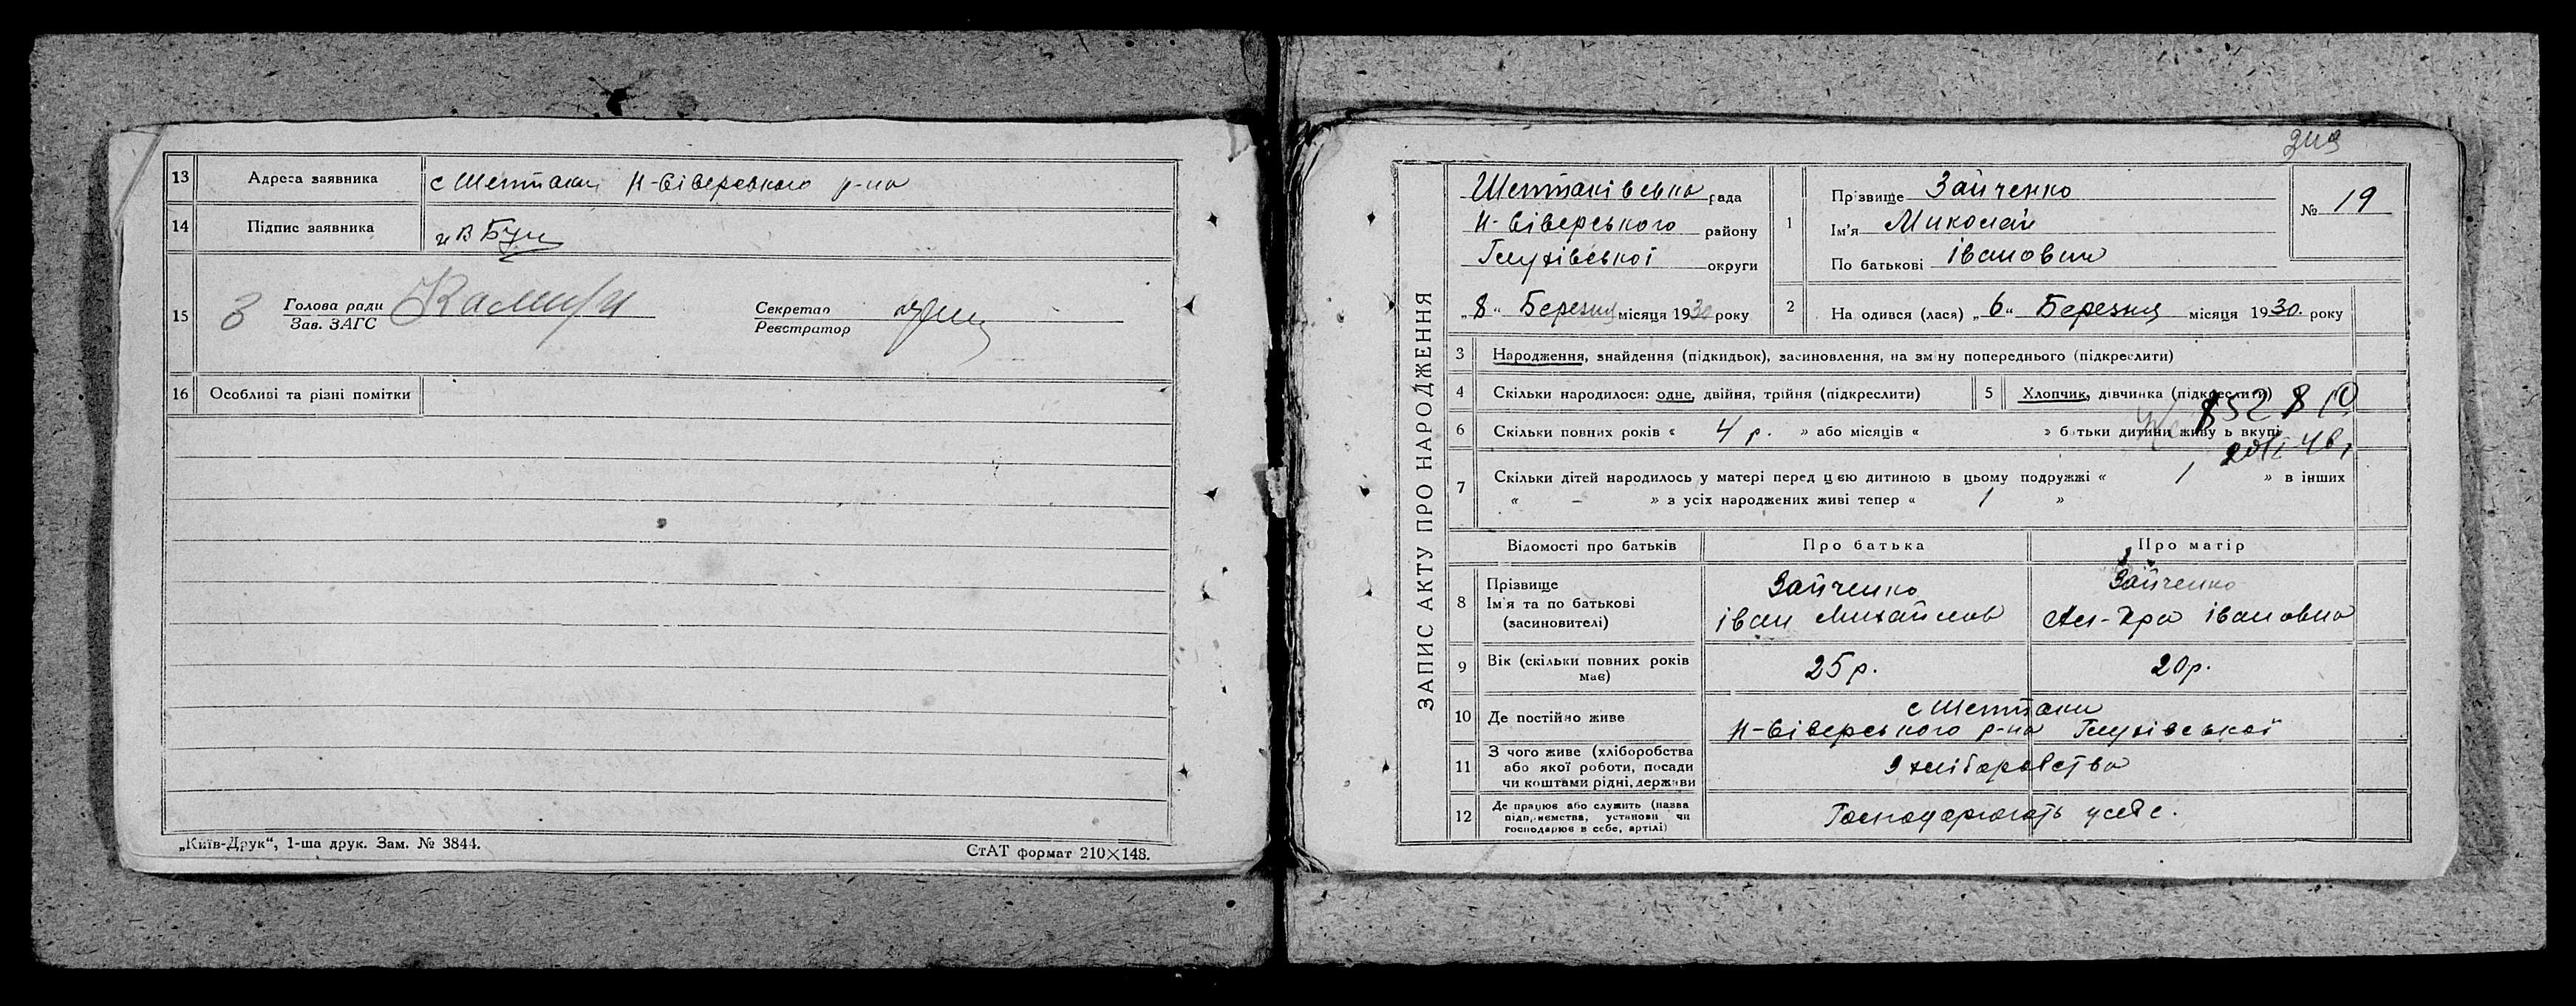 13 Адреса заявника с Шептаки Н-Сіверського р-на
14 Підпис заявника
15 Голова ради
Зав. ЗАГС
Секретар
Реєстратор
16 Особливі та різні помітки
„Київ-Друк“, 1-ша друк. Зам. № 3844.
СтАТ формат 210×148.
ЗАПИС АКТУ ПРО НАРОДЖЕННЯ
Шептаківська рада
Н-Сіверського району
Глухівської округи
„8“ Березня місяця 1930 року
1 Прізвище Зайченко
Ім'я Миколай
По батькові Іванович
№ 19
2 На одився (лася) „6“ Березня місяця 1930. року
3 Народження, знайдення (підкидьок), засиновлення, на зміну попереднього (підкреслити)
4 Скільки народилося: одне, двійня, трійня (підкреслити)
5 Хлопчик, дівчинка (підкреслити)
6 Скільки повних років « 4 р. » або місяців « » батьки дитини живуть вкупі
7 Скільки дітей народилось у матері перед цією дитиною в цьому подружжі « 1 » в інших
« – » з усіх народжених живі тепер « 1 »
Відомості про батьків Про батька Про матір
8 Прізвище
Ім'я та по батькові
(засиновителі)
Зайченко
Іван Михайлов
Зайченко
Ал-дра Івановна
9 Вік (скільки повних років
має)
25 р. 20 р.
10 Де постійно живе
с Шептаки
Н-Сіверського р-на Глухівської
11 З чого живе (хліборобства
або якої роботи, посади
чи коштами рідні, держави
З хліборобства
12 Де працює або служить (назва
підприємства, установи чи
господарює в себе, артілі)
Господарюють у себе.